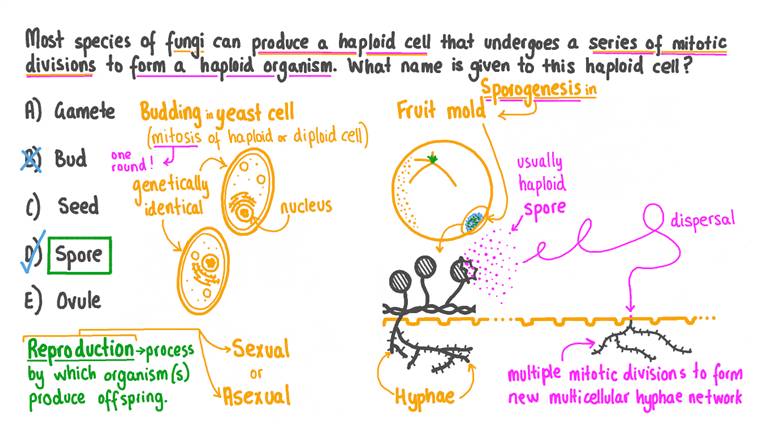 Most species of fungi can produce a haploid cell that undergoes a series of mitotic
divisions to form a haploid organism. What name is given to this haploid cell?
A) Gamete
B) Bud
C) Seed
D) Spore
E) Ovule
Budding in yeast cell
(mitosis of haploid or diploid cell)
one
round!
genetically
identical
nucleus
Sporogenesis in
Fruit mold
usually
haploid
spore
dispersal
Hyphae
multiple mitotic divisions to form
new multicellular hyphae network
Reproduction → process
by which organism(s)
produce offspring.
Sexual
or
Asexual